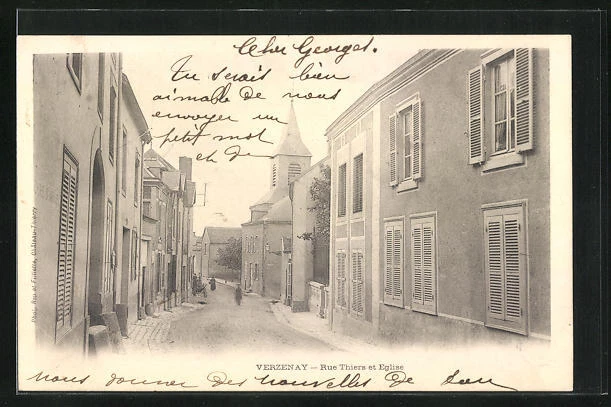 Cher Georges.
Tu serais bien
aimable de nous
envoyer un
petit mot
et de
VERZENAY. — Rue Thiers et Eglise
nous donner des nouvelles de